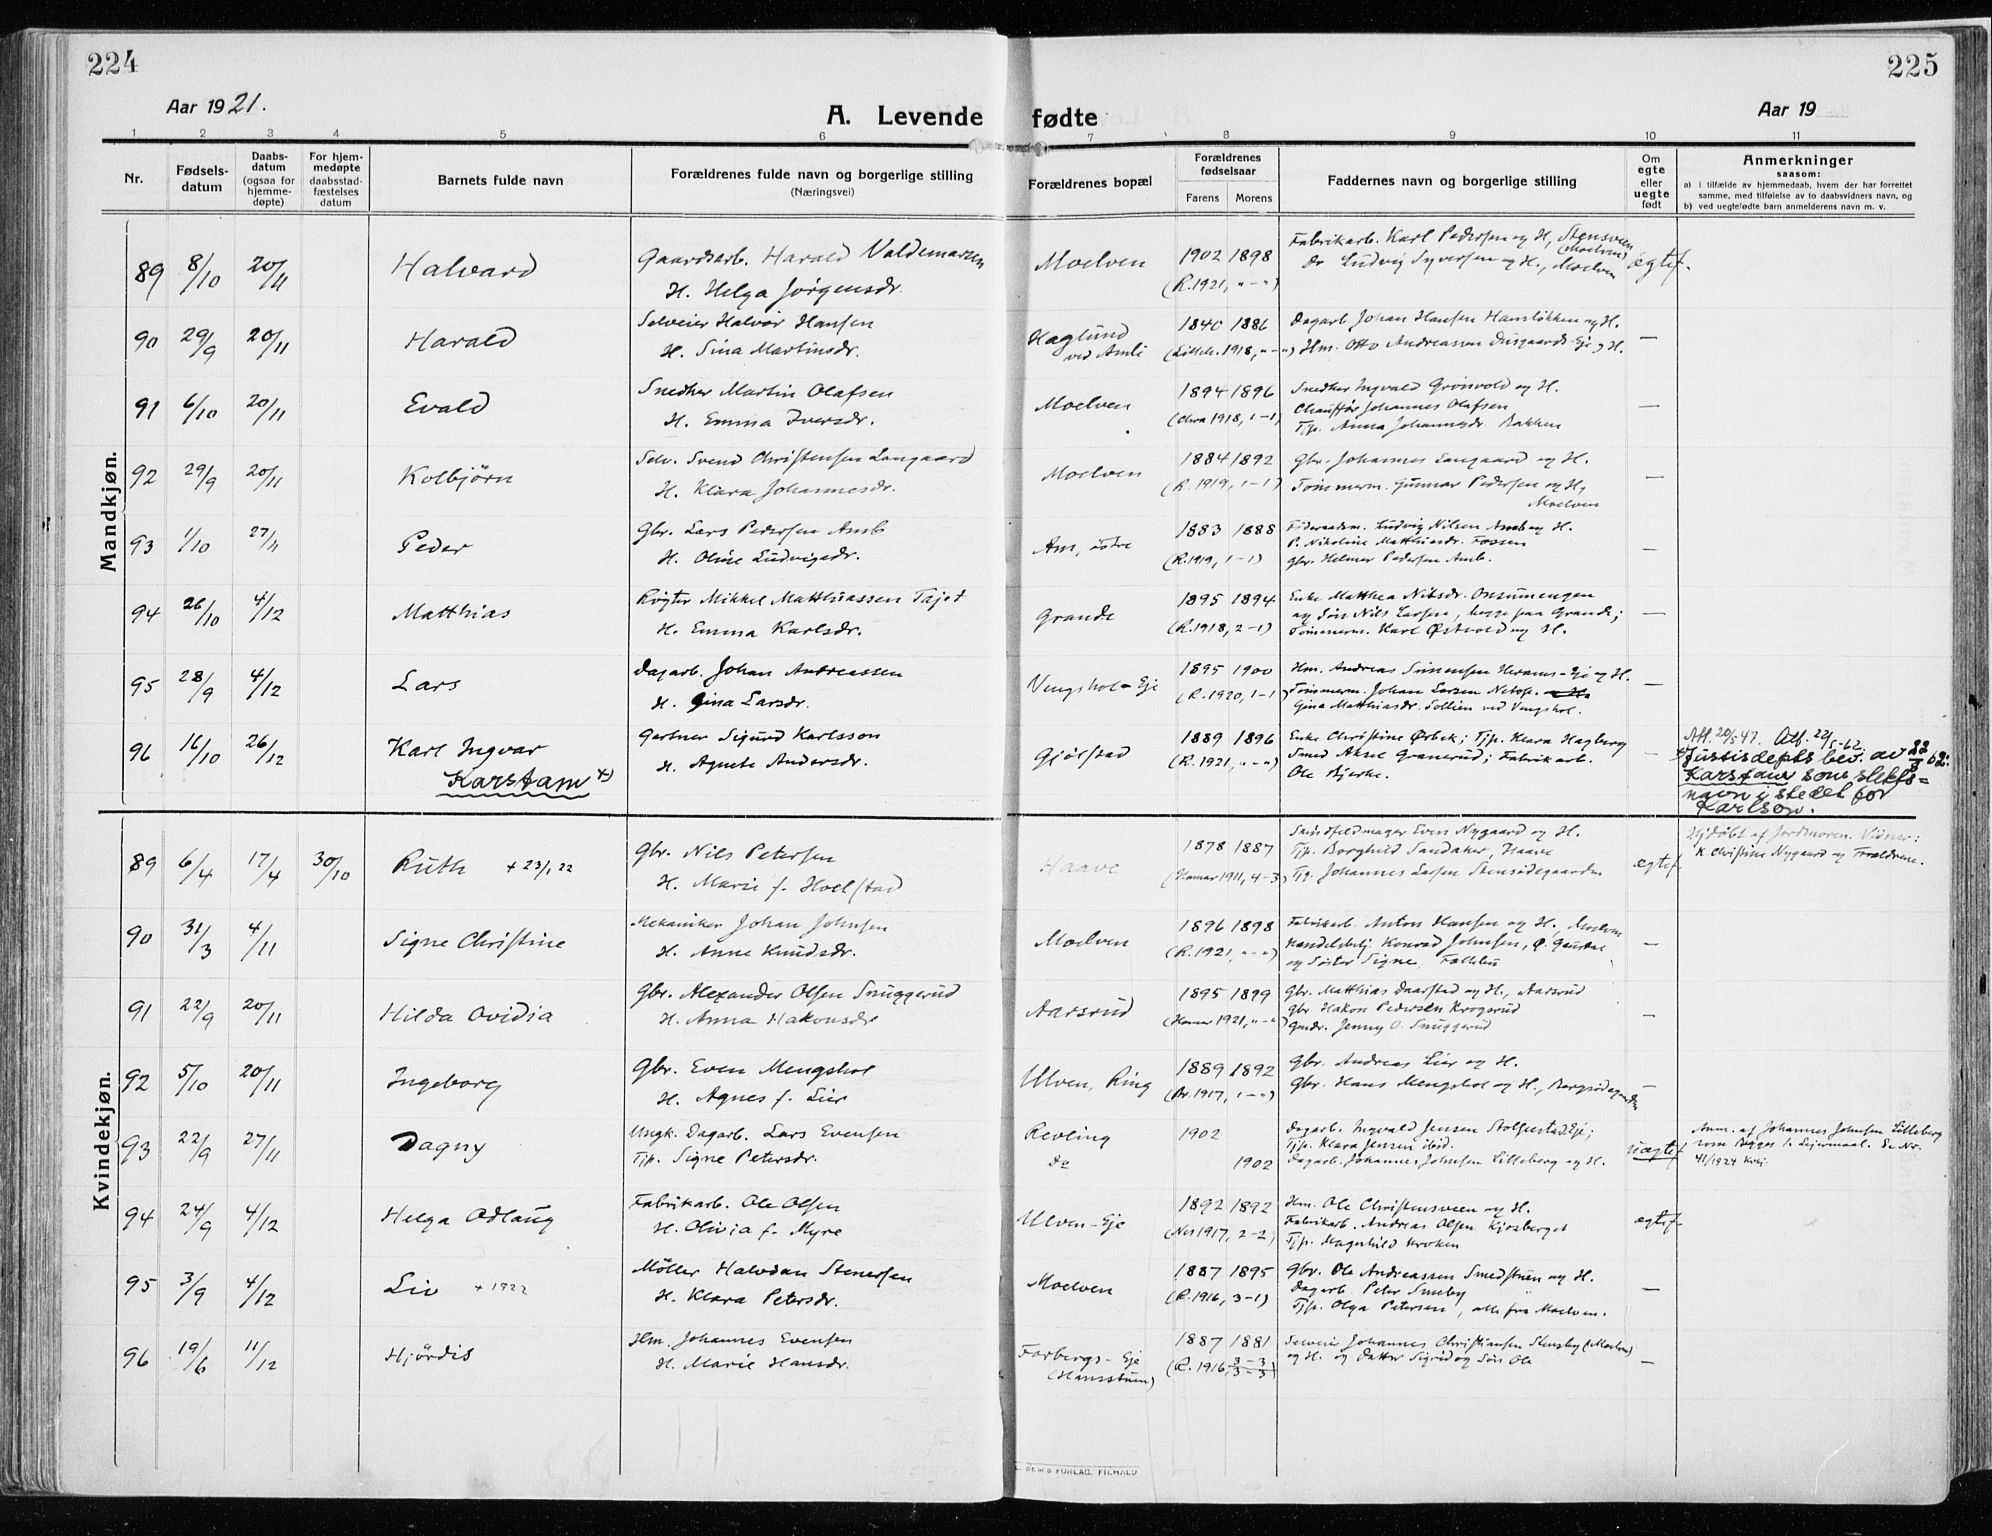 224
225
Aar 1921.
A. Levende fødte
Aar 19
1 2 3 4 5 6 7 8 9 10 11
Nr.
Fødsels-
datum
Daabs-
datum
(ogsaa for
hjemme-
døpte)
For hjem-
medøpte
daabsstad-
fæstelses
datum
Barnets fulde navn
Forældrenes fulde navn og borgerlige stilling
(Næringsvei)
Forældrenes bopæl
Forældrenes
fødselsaar
Farens Morens
Faddernes navn og borgerlige stilling
Om
egte
eller
uegte
født
Anmerkninger
saasom:
a) i tilfælde av hjemmedaab, hvem der har forrettet
samme, med tilføielse av to daabsvidners navn, og
b) ved uegtefødte barn anmelderens navn m. v.
Mandkjøn.
89 8/10 20/11 Halvard Gaardsarb. Harald Valdemarsen Moelven 1902 1898 Fabrikarb. Karl Pedersen og H, Stensveen
(Moelven)
H. Helga Jörgensdr. (R. 1921, "-") Do Ludvig Syversen og H., Moelven ægtef.
90 29/9 20/11 Harald Selveier Halvor Hansen Haglund 1840 1886 Dagarb. Johan Hansen Hansløkken og H. —
H. Sina Martinsdr. ved Amli 1918, "-") Hm. Otto Andreassen Eje og H.
91 6/10 20/11 Evald Snedker Martin Olafsen Moelven 1894 1896 Snedker Ingvald Grönvold og H.
H. Emma Iversdr. (Chra 1918, 1-1) Chauffør Johannes Olafsen —
Tjp. Anna Johannesdr. Bakken
92 29/9 20/11 Kolbjörn Selv. Svend Christensen Langaard Moelven 1884 1892 Gbr. Johannes Langaard og H.
H. Klara Johannesdr. (R. 1919, 1-1) Tömmerm. Gunnar Pedersen og H, —
Moelven
93 1/10 27/11 Peder Gbr. Lars Pedersen Amb Am, östre 1883 1888 Föderaadsm. Ludvig Nilsen Amb og H.
H. Oline Ludvigsdr. (R. 1919, 1-1) P. Nikoline Matthiasdr. Fossen —
Gbr. Helmer Pedersen Amb.
94 26/10 4/12 Matthias Røgter Mikkel Matthiassen Tajet Grande 1895 1894 Enke Matthea Nilsdr.
H. Emma Karlsdr. (R. 1918, 2-1) og Sön Nils Larsen, begge paa Grande; —
Tömmerm. Karl Østvold og H.
95 28/9 4/12 Lars Dagarb. Johan Andreassen Vengshol-Eje 1895 1900 Hm. Andreas Simensen Eje og H.
H. Gina Larsdr. (R. 1920, 1-1) Tömmerm. Johan Larsen —
Gina Matthiasdr. Sollien ved Vengshol.
96 16/10 26/12 Karl Ingvar Gartner Sigurd Karlsson Gjölstad 1889 1896 Enke Christine Ørbek; Tjp. Klara Hagberg
Karstam x) H. Agnete Andersdr. (R. 1921, "-") Smed Aksel Granerud; Fabrikarb. —
Ole Bjerke.
Att. 20/5-47. Att. 22/5-62.
x) Justisdepts bev. av 22/8 62:
Karstam som slekts=
navn i stedet for
Karlson.
Kvindekjøn.
89 6/4 17/4 30/10 Ruth + 23/1 22 Gbr. Nils Petersen Haave 1878 1887 Skindfeldmager Even Nygaard og H.
H. Marie f. Hoelstad (Hamar 1911, 4-3) Tjp. Borghild Sandaker, Haave ægtef.
Tjp. Johannes Larsen Stensödegaarden
Hj.döbt af Jordmoren. Vidner:
K. Christine Nygaard og Forældrene.
90 31/3 4/11 Signe Christine Mekaniker Johan Johnsen Moelven 1896 1898 Fabrikarb. Anton Hansen og H., Moelven
H. Anne Knudsdr. (R. 1921, "-") Handelsbetj. Konrad Johnsen, —
og Söster Signe,
91 22/9 20/11 Hilda Ovidia Gbr. Alexander Olsen Snuggerud Aarsrud 1895 1899 Gbr. Matthias Daarstad og H., Aarsrud
H. Anna Hakonsdr (Hamar 1921, "-") Gbr Hakon Pedersen Krogsrud —
Gmdr. Jenny O. Snuggerud
92 5/10 20/11 Ingeborg Gbr. Even Mengshol Ulven, Ring 1889 1892 Gbr. Andreas Lier og H.
H. Agnes f. Lier (Br. 1917, 1-") Gbr. Hans Mengshol og H., —
93 22/9 27/11 Dagny Ungk. Dagarb. Lars Evensen Revling 1902 Dagarb. Ingvald Jensen Stolpestad.Eje;
Tjp. Signe Petersdr. do 1902 Tjp. Klara Jensen ibid. uægtef
Dagarb. Johannes Johnsen Lilleberg og H.
Anm. af Johannes Johnsen Lilleberg
som begges 1. Lejermaal. Se Nr.
41/1924 Kvkj.
94 24/9 4/12 Helga Odlaug Fabrikarb. Ole Olsen Ulven-Eje 1892 1892 Hm. Ole Christensveen og H.
H. Olivia f. Myre (Nes 1917, 2-2) Fabrikarb. Andreas Olsen Kjosberget ægtef
Tjp. Magnhild Kroken
95 3/9 4/12 Liv + 1922 Möller Halvdan Stenersen Moelven 1887 1895 Gbr. Ole Andreassen Smedstuen og H.
H. Klara Petersdr. (R. 1916, 3-1) Dagarb. Peter Smeby —
Tjp. Olga Petersen, alle fra Moelven.
96 19/6 11/12 Hjördis Hm. Johannes Evensen Farbergs-Eje 1887 1881 Selveier Johannes Christiansen Stensby (Moelven)
H. Marie Hansdr. (Hansstuen) (R. 1916, 3-3) og H. og Datter Sigrid og Sön Ole —